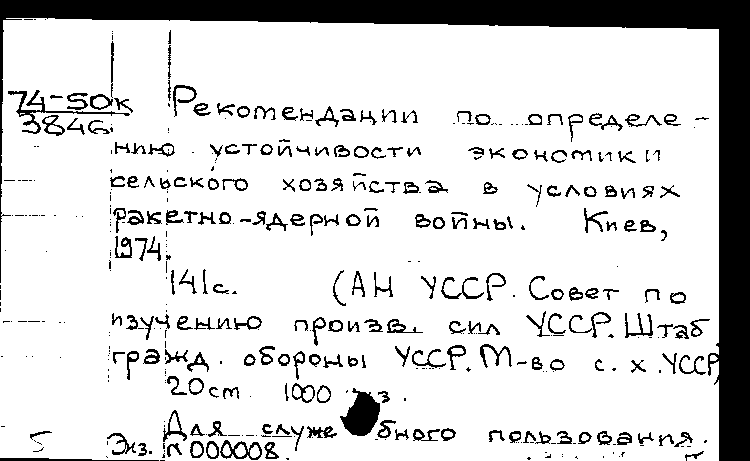 74-50к
3846
Рекомендации по определе-
нию устойчивости экономики
сельского хозяйства в условиях
ракетно-ядерной войны. Киев,
1974.
141с. (АН УССР. Совет по
изучению произв. сил УССР. Штаб
гражд. обороны УССР. М-во с. х. УССР)
20см 1000
Для служебного пользования.
5 Экз. № 000008.